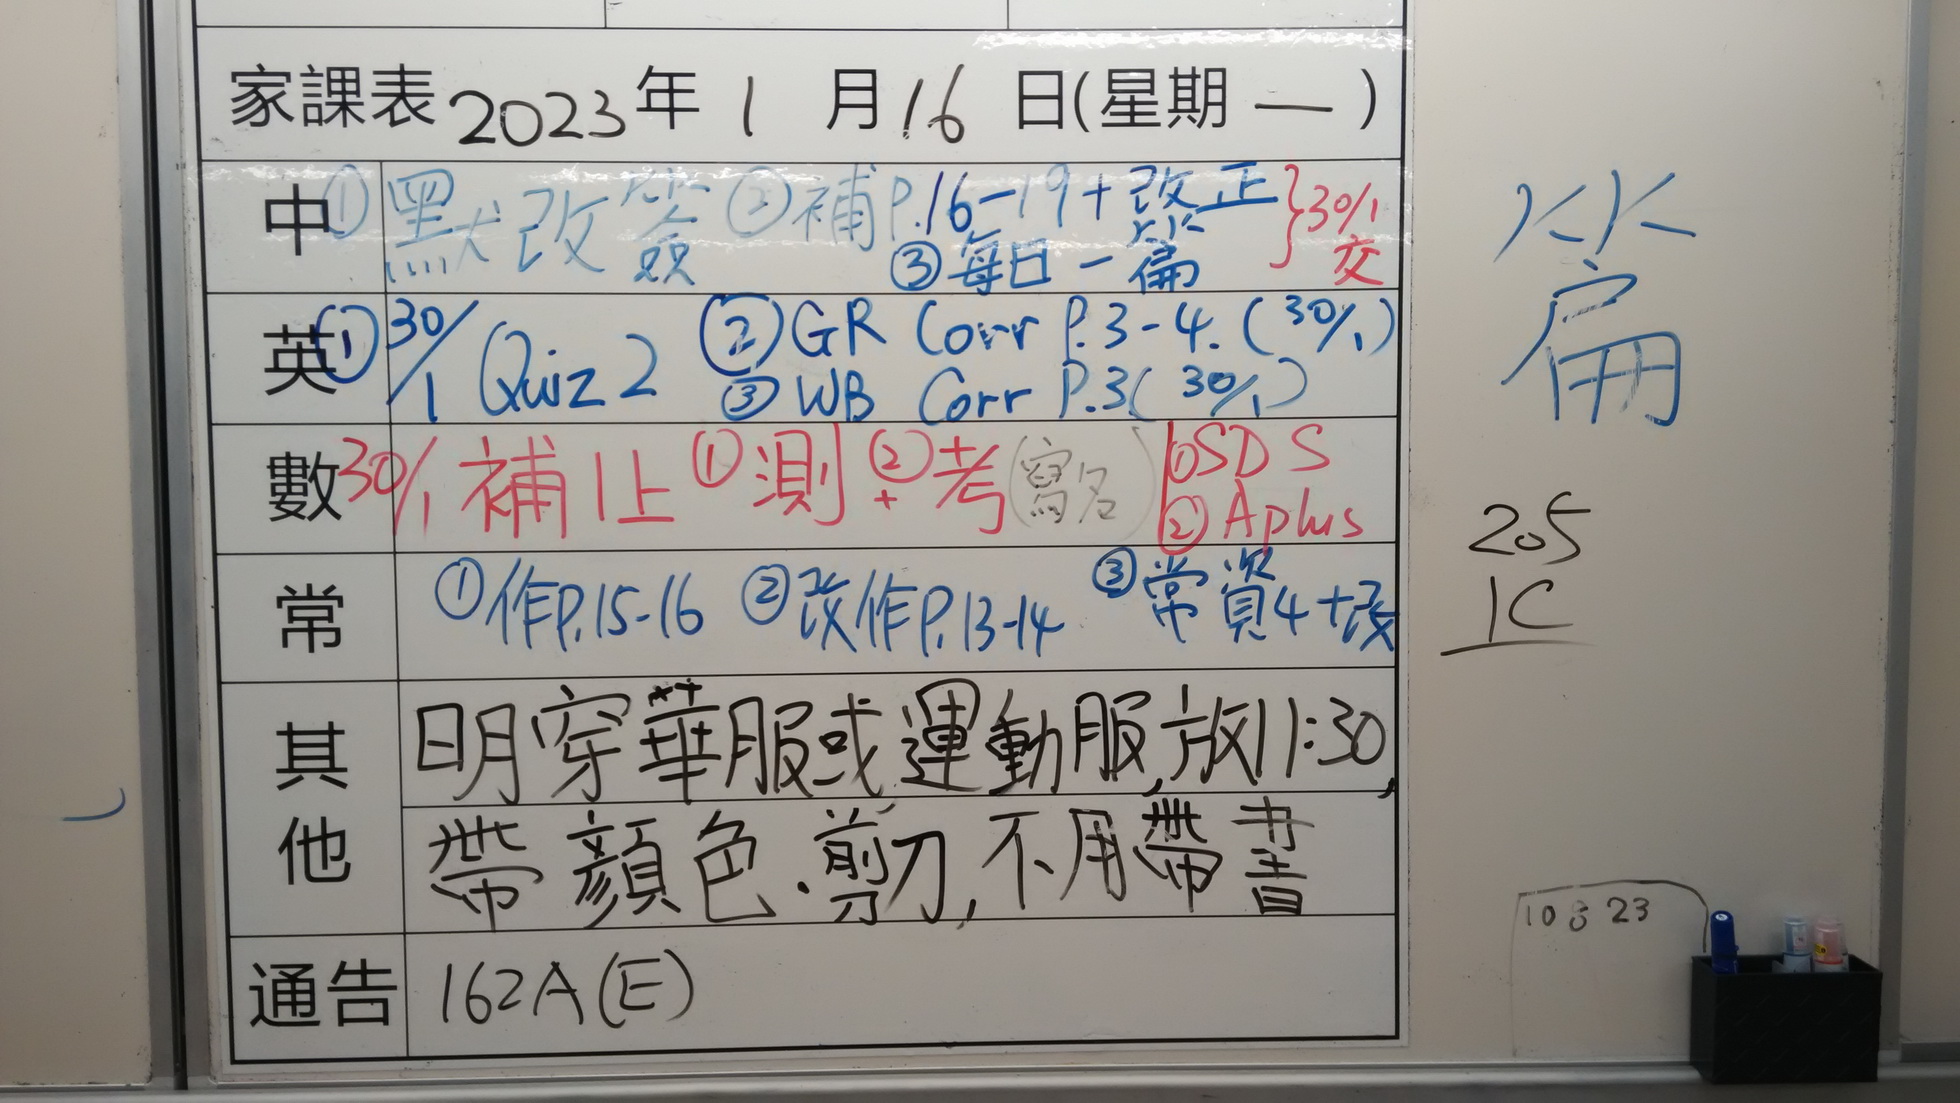 家課表 2023 年 1 月 16 日(星期 一 )
中 ① 默改簽 ② 補P.16-19+改正 } 30/1
③ 每日一篇 交
英 ① 30/1 Quiz 2 ② GR Corr P.3-4. (30/1)
③ WB Corr P.3(30/1)
數 30/1 補止 ① 測 + ② 考 (寫名) ① SDS
② Aplus
常 ① 作P.15-16 ② 改作P.13-14 ③ 常資4+改
其他 明穿華服或運動服,放11:30,
帶顏色.剪刀,不用帶書
通告 162A(E)
篇
205
1C
10 8 23